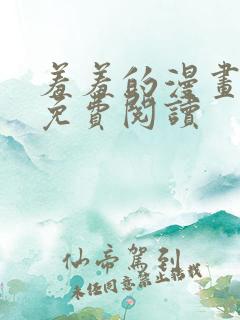 羞羞的漫畫
免費閱讀
仙帝駕到
未任同意禁止結載